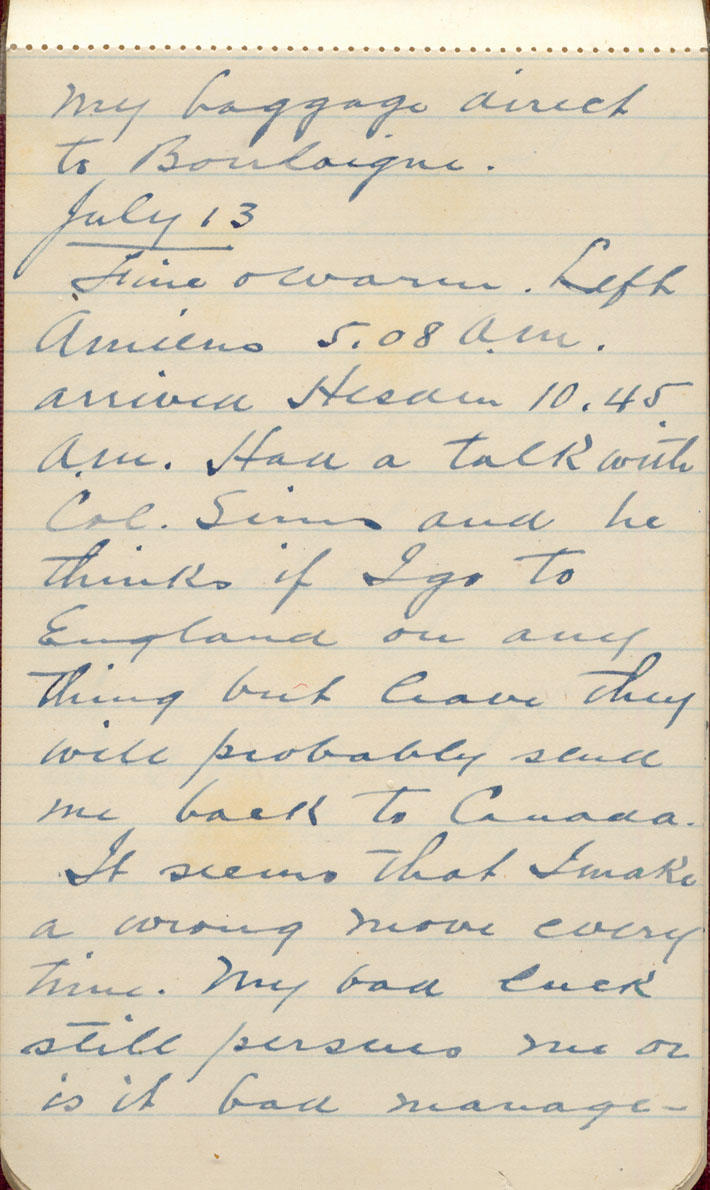 my baggage direct
to Boulaigne.
July 13
Fine & warm. Left
Amiens 5.08 a.m.
arrived Hesden 10.45
a.m. Had a talk with
Col. Sims and he
thinks if I go to
England on any
thing but leave they
will probably send
me back to Canada.
It seems that I make
a wrong move every
time. My bad luck
still persues me or
is it bad manage-